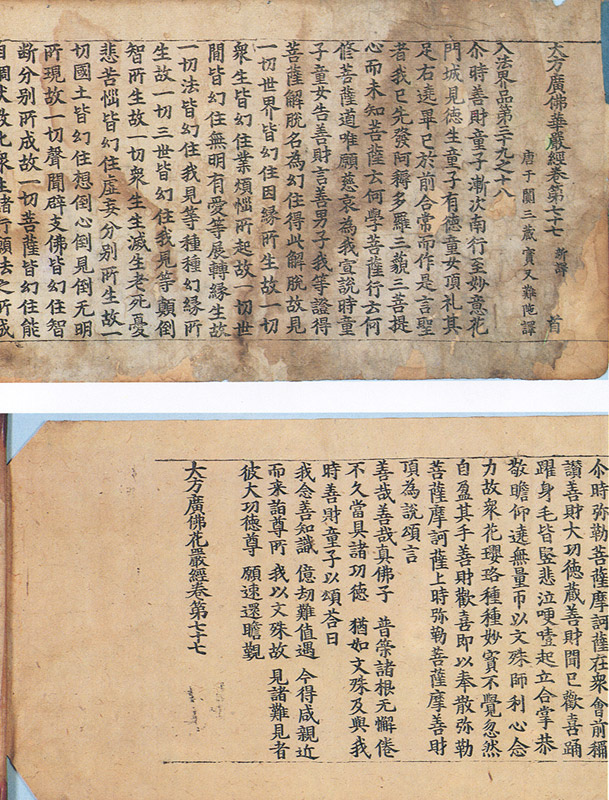 大方廣佛華嚴經卷第七十七 新譯 首
唐于闐三藏實叉難陁譯
入法界品第三十九之十八
尒時善財童子漸次南行至妙意花
門城見德生童子有德童女頂礼其
足右遶畢已於前合掌而作是言聖
者我已先發阿耨多羅三藐三菩提
心而未知菩薩云何學菩薩行云何
修菩薩道唯願慈哀為我宣說時童
子童女告善財言善男子我等證得
菩薩解脫名為幻住得此解脫故見
一切世界皆幻住因緣所生故一切
衆生皆幻住業煩惱所起故一切世
間皆幻住無明有愛等展轉緣生故
一切法皆幻住我見等種種幻緣所
生故一切三世皆幻住我見等顛倒
智所生故一切衆生生滅生老死憂
悲苦惱皆幻住虛妄分別所生故一
切國土皆幻住想倒心倒見倒无明
所現故一切聲聞辟支佛皆幻住智
斷分別所成故一切菩薩皆幻住能
自調伏教化衆生諸行願法之所成
尒時弥勒菩薩摩訶薩在衆會前稱
讚善財大功德藏善財聞已歡喜踊
躍身毛皆竪悲泣哽噎起立合掌恭
敬瞻仰遶無量帀以文殊師利心念
力故衆花瓔珞種種妙寶不覺忽然
自盈其手善財歡喜即以奉散弥勒
菩薩摩訶薩上時弥勒菩薩摩善財
頂為說頌言
善哉善哉真佛子 普策諸根无懈倦
不久當具諸功德 猶如文殊及與我
時善財童子以頌荅曰
我念善知識 億劫難值遇 今得咸親近
而来詣尊所 我以文殊故 見諸難見者
彼大功德尊 願速還瞻覲
大方廣佛花嚴經卷第七十七